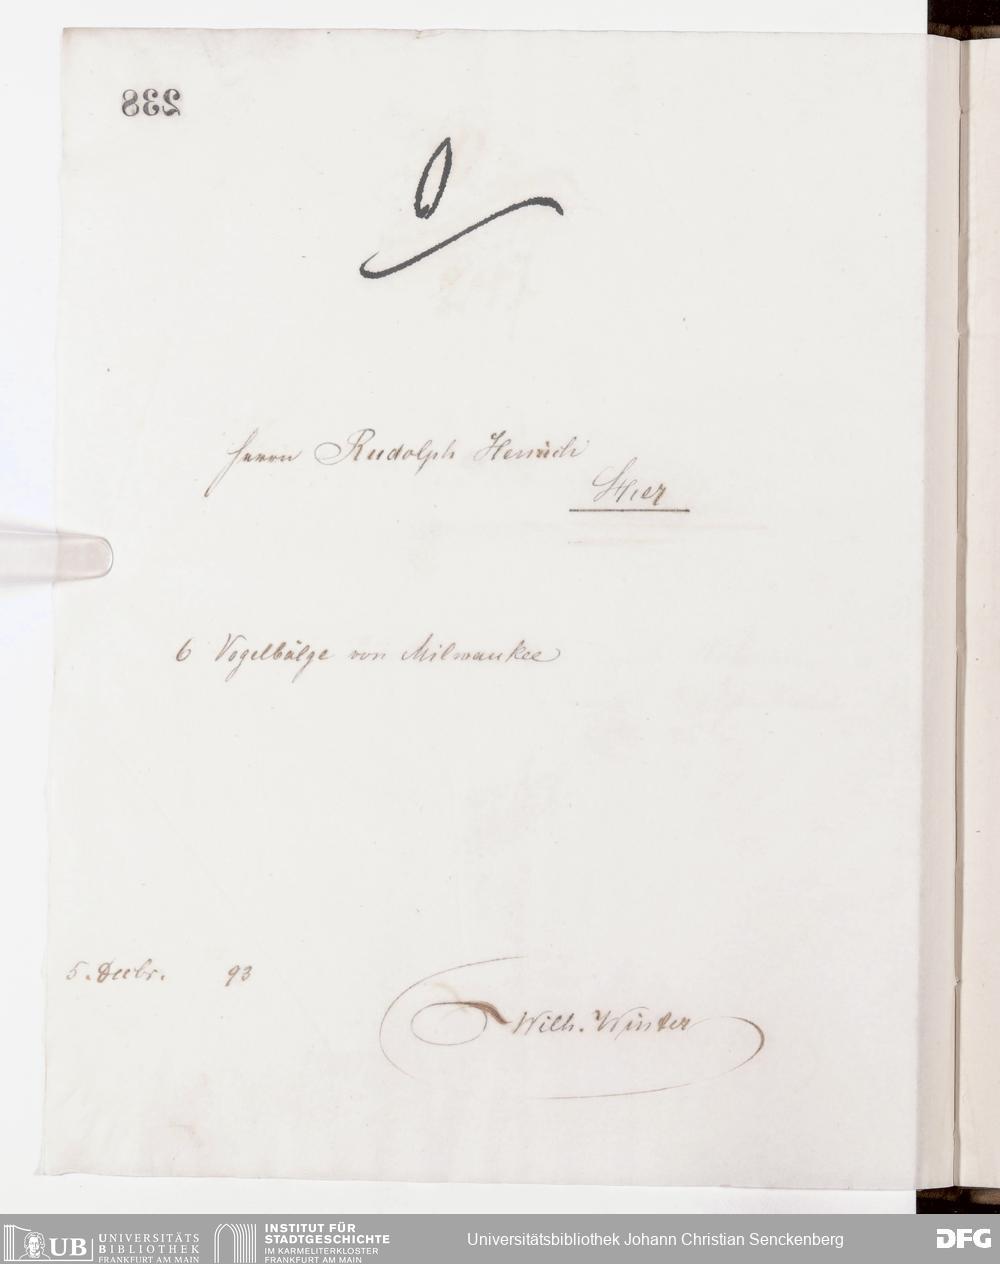 238
Herrn Rudolph Henrich
Hier
6 Vogelbälge von Milwaukee
5. Decbr. 93
Wilh. Winter
UB UNIVERSITÄTS
BIBLIOTHEK
FRANKFURT AM MAIN
INSTITUT FÜR
STADTGESCHICHTE
IM KARMELITERKLOSTER
FRANKFURT AM MAIN
Universitätsbibliothek Johann Christian Senckenberg
DFG